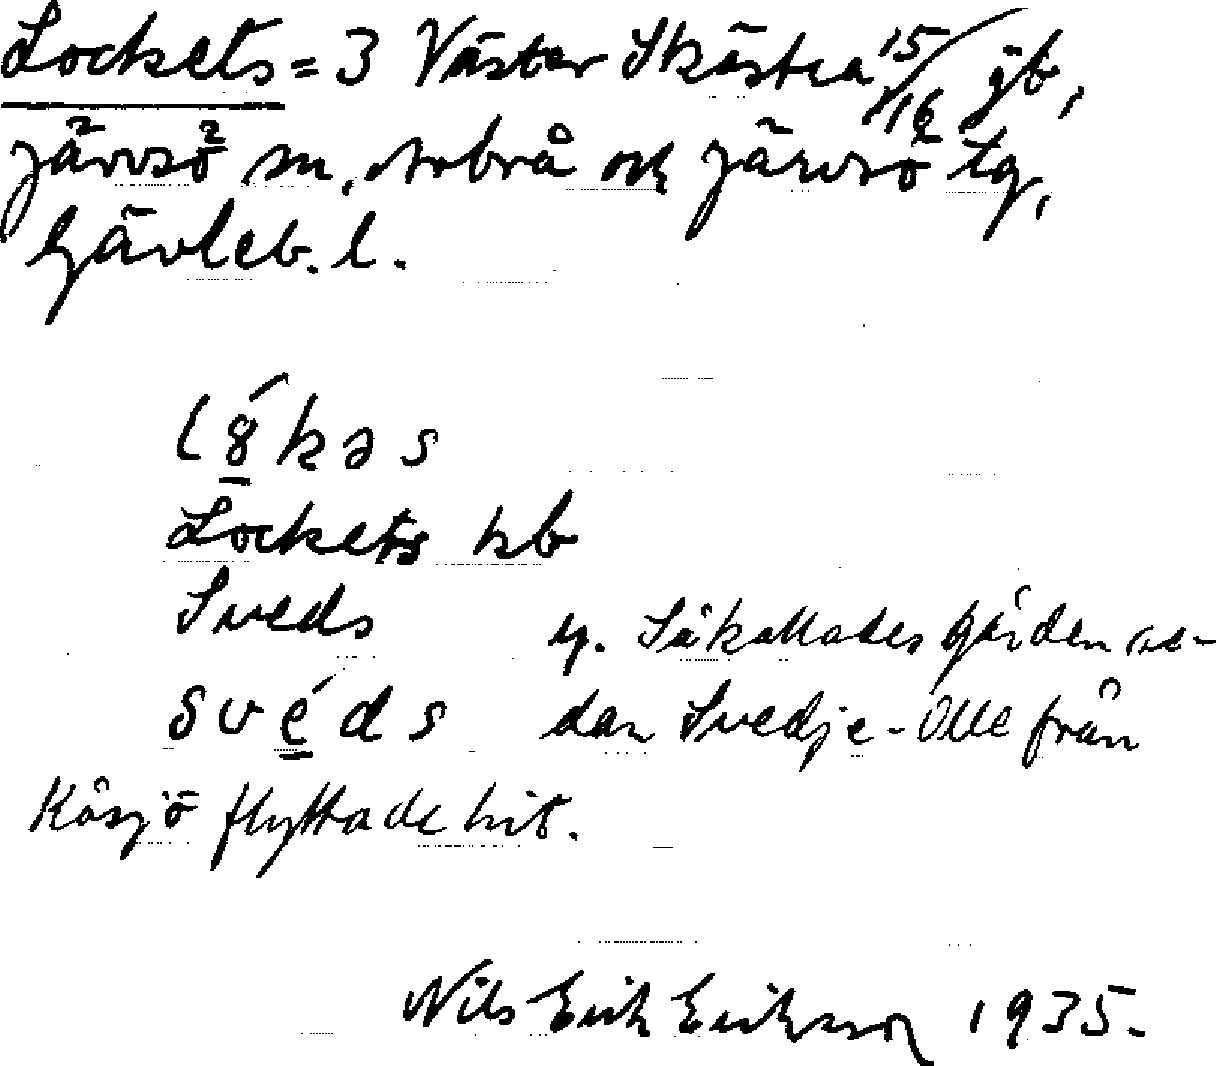 Lockets = 3 Väster Skästra 15/16 jb,
Järvsö sn, Arbrå och Järvsö tg,
Gävleb. l.
Lockets kb
Sveds y. Såkallades gården se-
svéds dan Svedje-Olle från
Kåsjö flyttade hit.
Nils Erik Eriksson 1935.